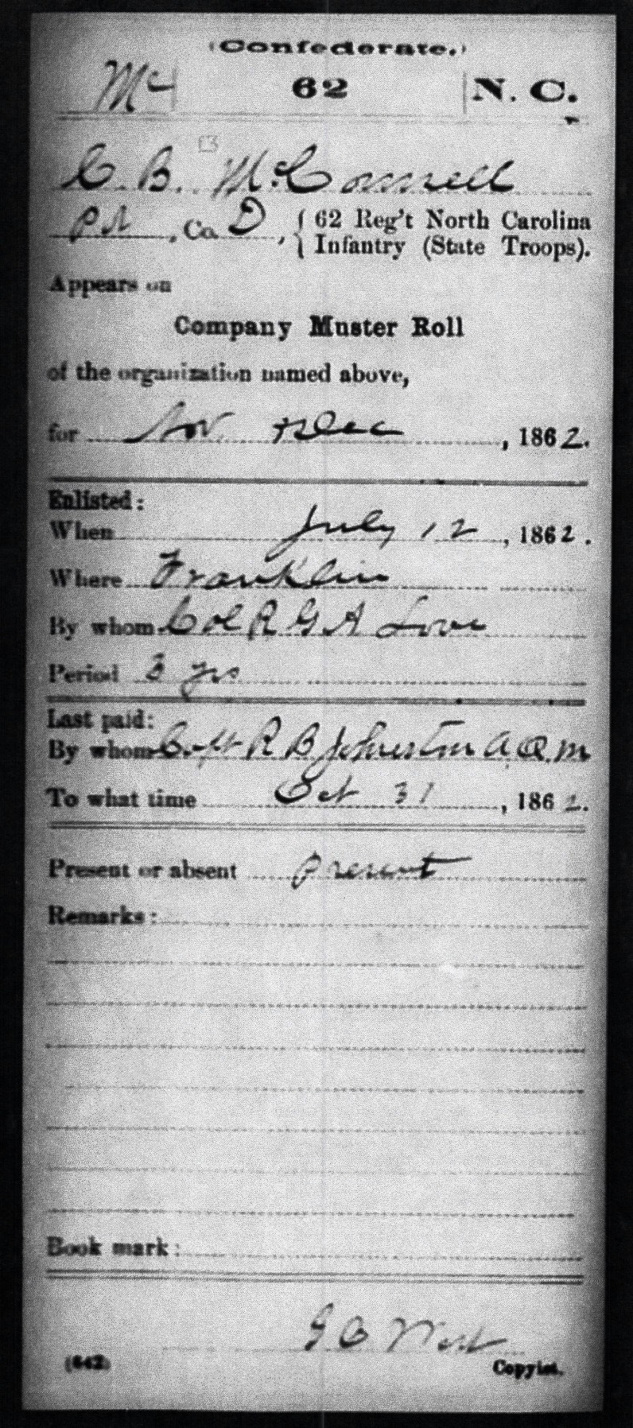 (Confederate.)
Mc 62 N. C.
C. B. McConnell
Pvt, Co. D, { 62 Reg't North Carolina
Infantry (State Troops).
Appears on
Company Muster Roll
of the organization named above,
for Nov. & Dec, 1862.
Enlisted:
When July 12, 1862.
Where Franklin
By whom Col R G A Love
Period 3 yrs
Last paid:
By whom Capt R B Johnston A.Q.M
To what time Oct 31, 1862.
Present or absent Present
Remarks:
Book mark:
G C West
(642) Copyist.